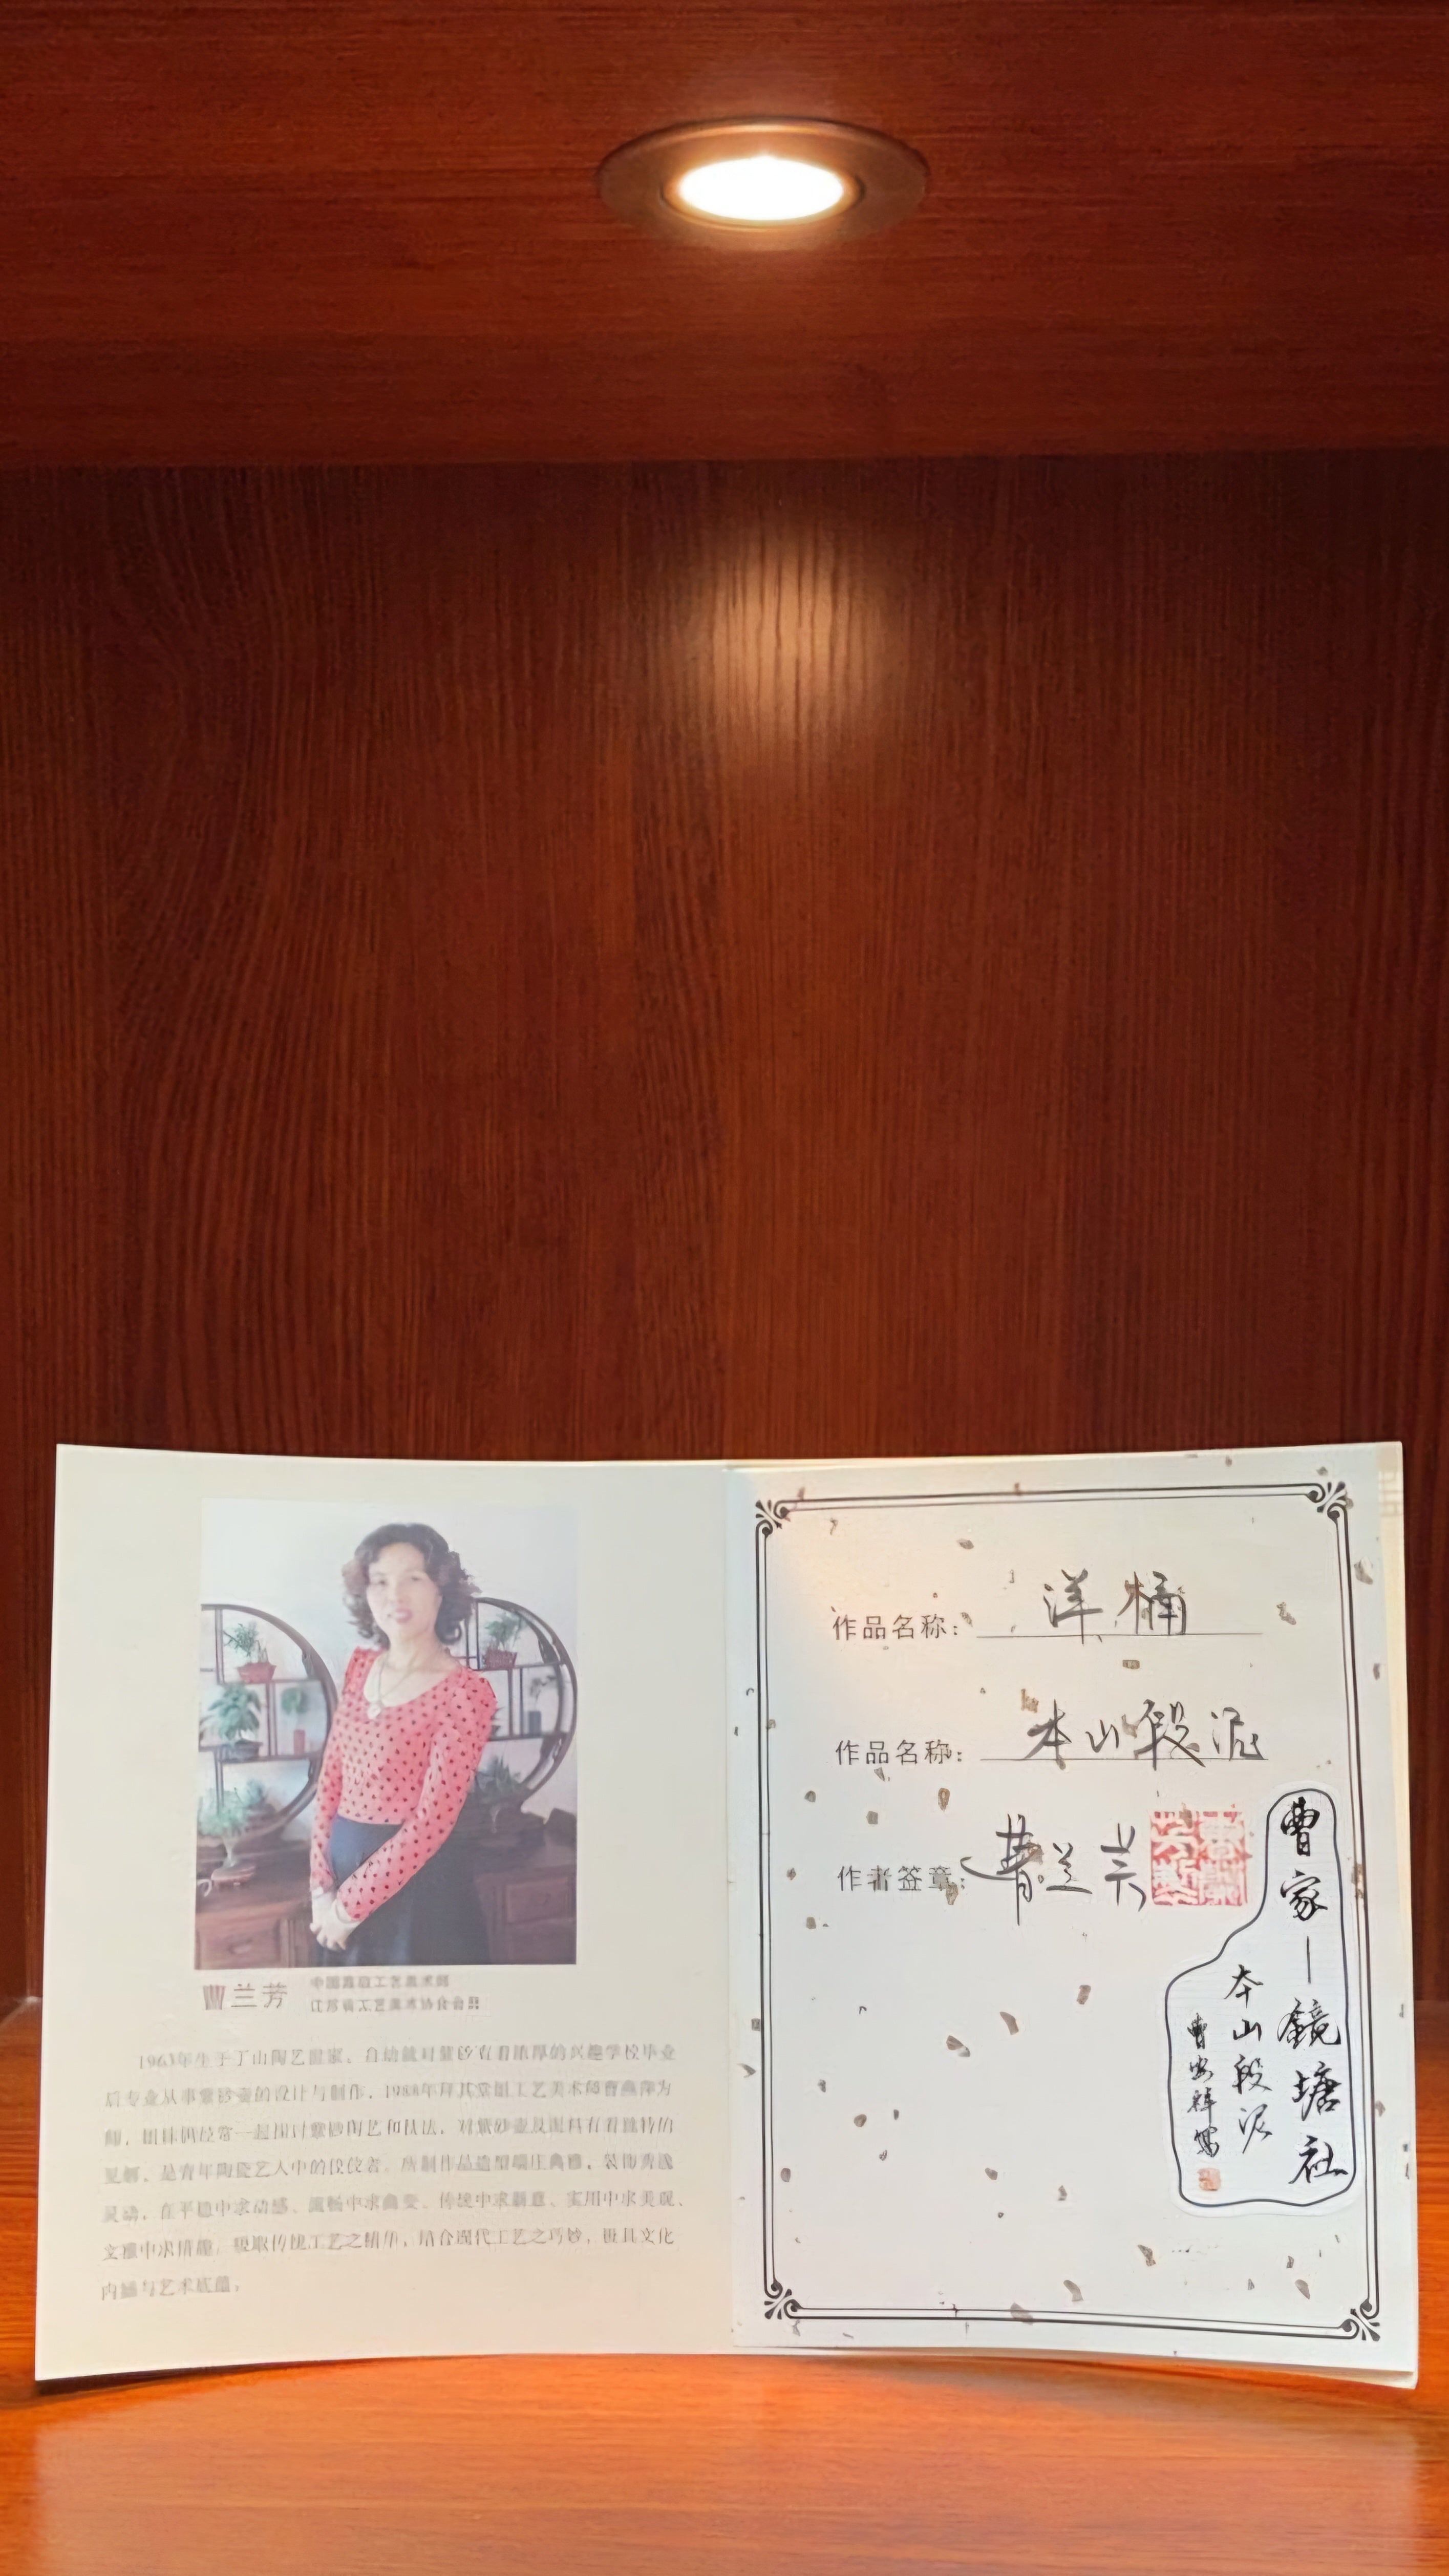 曹兰芳
江苏省工艺美术协会会员
1963年生于丁山陶艺世家、自幼就对紫砂有着浓厚的兴趣学校毕业
后专业从事紫砂壶的设计与制作，1988年拜其堂姐工艺美术师曹燕萍为
师，姐妹俩经常一起探讨紫砂陶艺和技法，对紫砂壶及泥料有着独特的
见解，是青年陶瓷艺人中的佼佼者。所制作品造型端庄典雅，装饰秀逸
灵动，在平稳中求动感、流畅中求曲变、传统中求新意、实用中求美观、
文雅中求情趣，吸取传统工艺之精华，结合现代工艺之巧妙，极具文化
内涵与艺术底蕴。
作品名称：洋桶
作品名称：本山段泥
作者签章：曹兰芳
曹家—鏡塘社
本山段泥